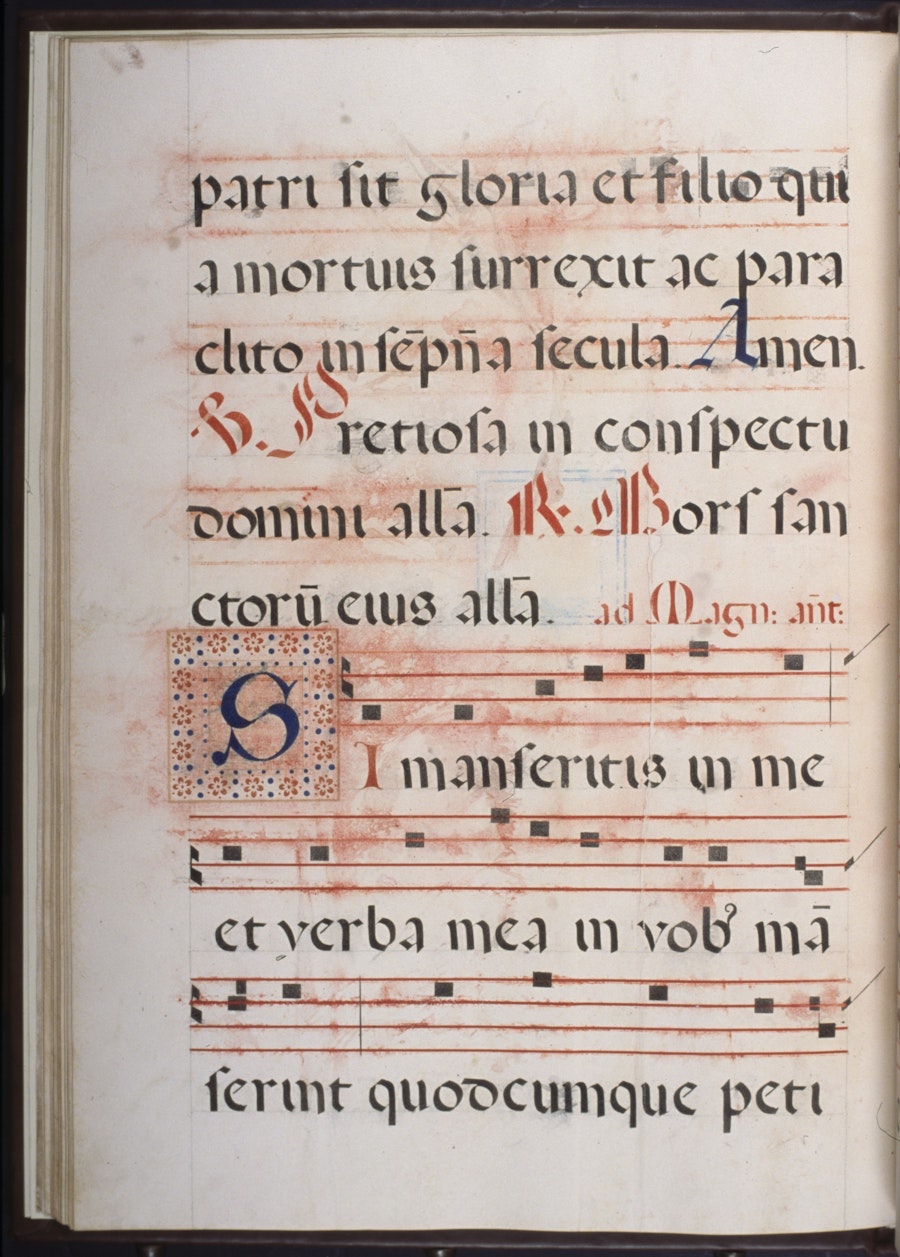 patri ſit gloria et filio qui
a mortuis ſurrexit ac para
clito in ſēpña ſecula. Amen.
℣. Pretioſa in conſpectu
domini allā. ℟. Mors ſan
ctorū eius allā. ad Magn: añt:
SI manſeritis in me
et verba mea in vobꝰ mā
ſerint quodcumque peti